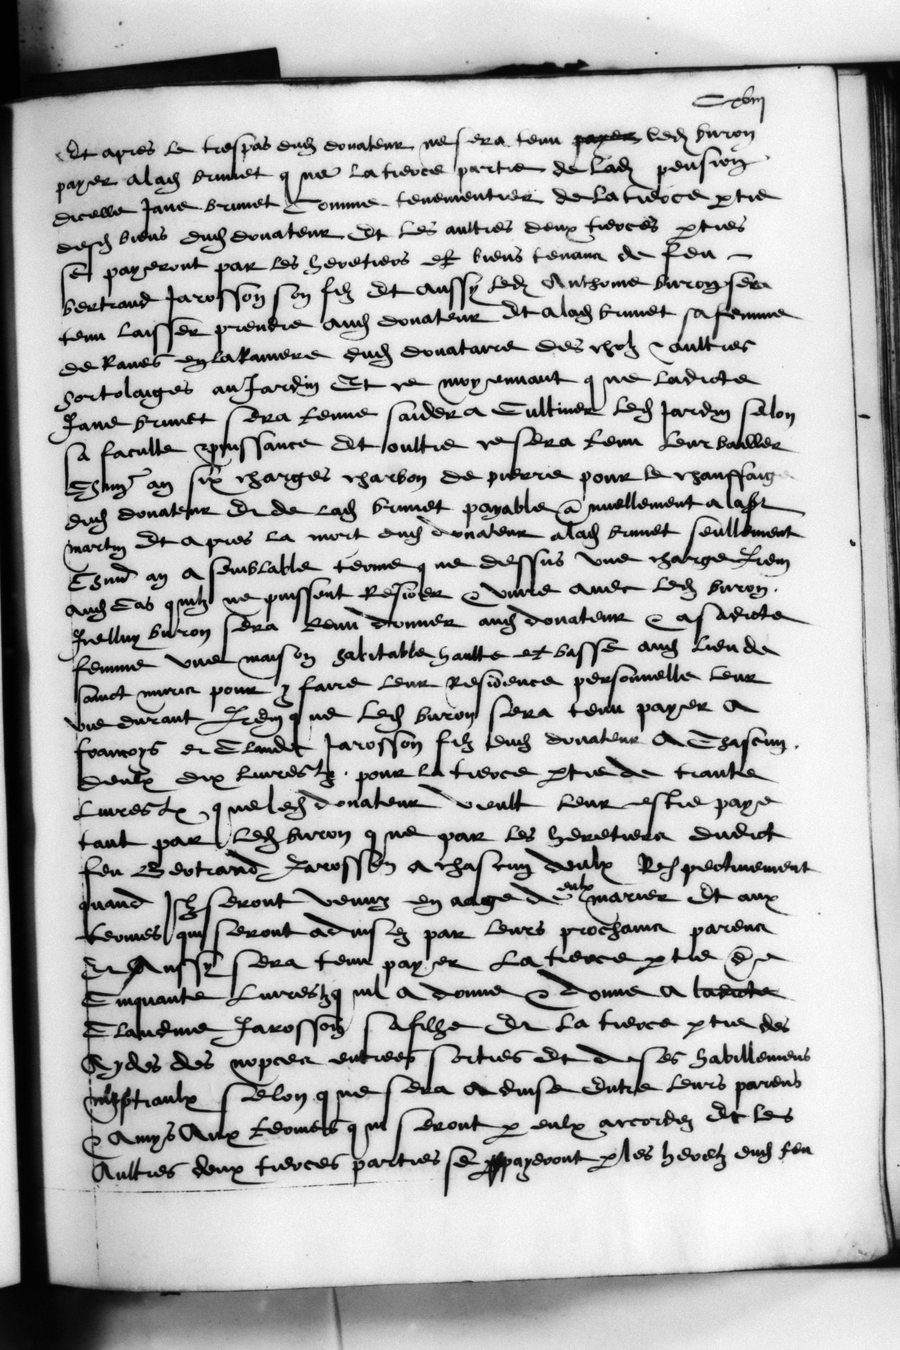 Cxviij
Et apres le trespas dud donateur ne sera tenu payer led buron
payer a lad brunet q ne la tierce partie de lad pension
dicelle Jane brunet Comme tenementier de la tierce ptie
desd biens dud donateur Et les aultres deux tierces pties
se payeront par les heretiers et biens tenans de feu
bertrand Jarosson son filz Et aussy led Anthoine buron sera
tenu laisser prendre aud donateur Et a lad brunet sa femme
de raues en la raviere dud donataire des cholz & aultres
hortolaiges au Jardin Et ce moyennant q ne ladicte
Jane brunet sera tenue saider a Cultiuer led Jardin selon
sa faculte & puissance Et oultre ce sera tenu leur bailler
Chun an six charges charbon de pierre pour le chauffaige
dud donateur Et de lad brunet payable anuellement a la st
martin Et apres la mort dud donateur a lad brunet seullement
Chun an a semblable terme q ne dessus vne charge Item
aud Cas quilz ne puissent Resider & viure auec led buron
Icelluy buron sera tenu donner aud donateur & a sadicte
femme vne maison habitable haulte et basse aud lieu de
sainct pour y faire leur Residence personnelle leur
vie durant Item q ne led buron sera tenu payer a
francoys et Claude Jarosson filz dud donateur A Chascun
deulx dix liures tz pour la tierce ptie de trante
liures tz q ne led donateur veult leur estre paye
tant par led buron q ne par les heretiers dudict
feu Bertrand Jarosson a chascun deulx Respectiuement
quand Ilz seront venuz en aage de eulx marier Et aux
termes qui seront aduisez par leurs prochains parens
Et Aussy sera tenu payer La tierce ptie de
Cinquante liures tz quil a donne & donne a ladicte
Claudine Jarosson sa filhe Et la tierce ptie des
Aydes des nopces entrees sorties Et de ses habillemens
nuptiaulx selon q ne sera aduise Entre leurs parens
& Amys Aux termes q ni seront p eulx accordez Et les
Aultres deux tierces parties se payeront p les heretz dud feu